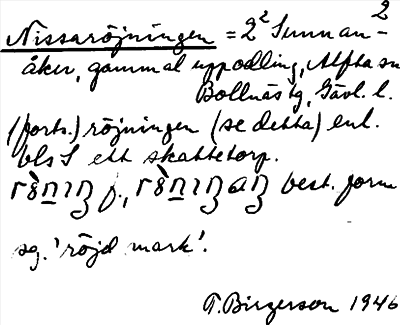 Nissaröjningen = 2² Sunnan-²
åker, gammal uppodling, Alfta sn
Bollnäs tg, Gävl. l.
(forts.) röjningen (se detta) enl.
bls 1 ett skattetorp.
f., best. form
sg. 'röjd mark'.
T. Birgerson 1946